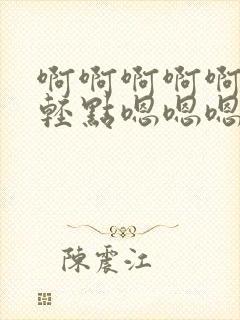 啊啊啊啊啊
輕點嗯嗯嗯
陳震江